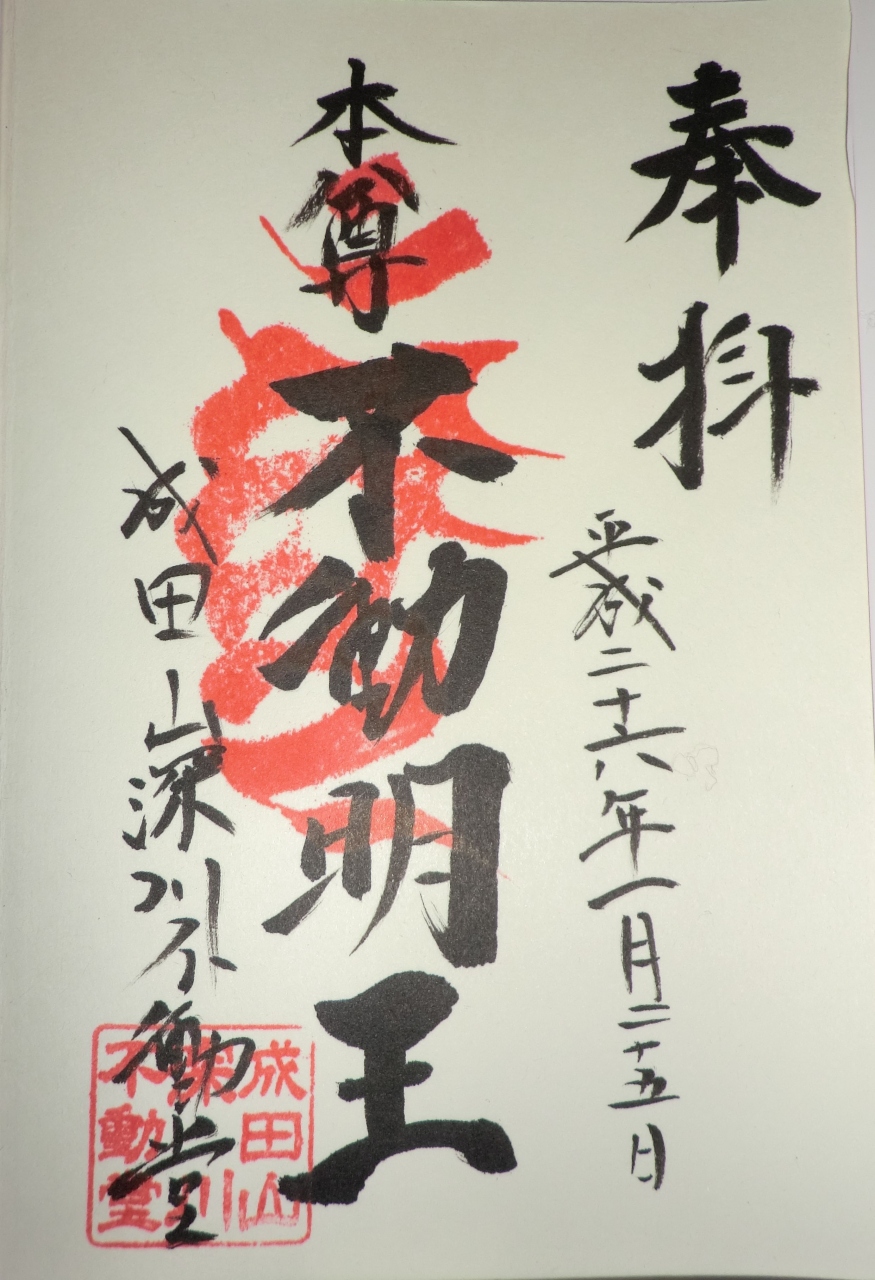 奉拝
平成二十六年一月二十五日
本尊 不動明王
成田山深川不動堂
成田山
深川
不動堂